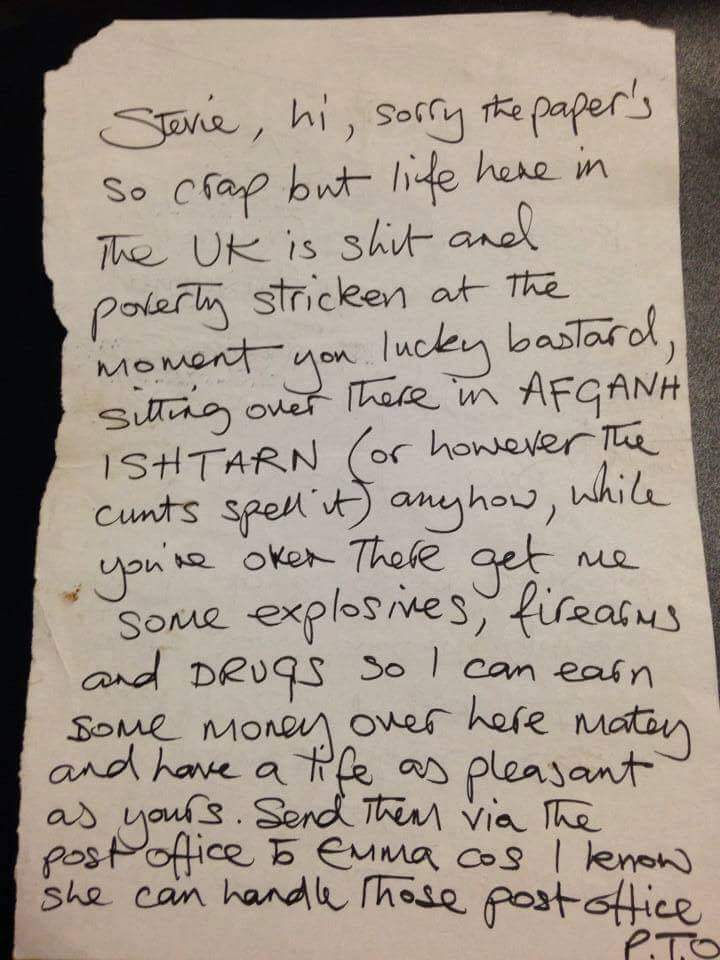 Stevie, hi, sorry the paper's
so crap but life here in
The UK is shit and
poverty stricken at the
moment you lucky bastard,
sitting over There in AFGANH
ISHTARN (or however the
cunts spell it) anyhow, while
you're over There get me
some explosives, firearms
and DRUGS so I can earn
some money over here matey
and have a life as pleasant
as yours. Send them via the
post office to Emma cos I know
she can handle those post office
P.T.O